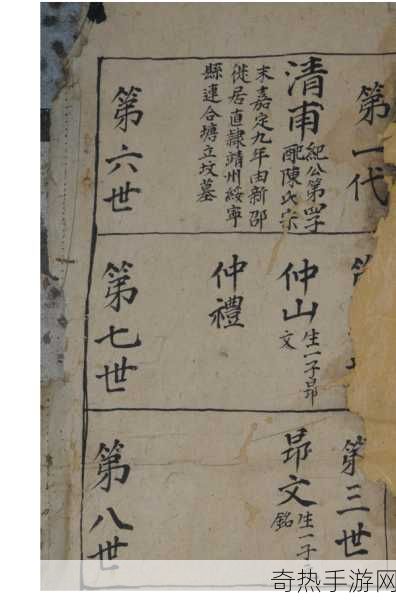 第一代
清甫
紀公第四子
配陳氏宗
末嘉定九年由新邵
徙居直隸靖州綏寧
縣連合塘立墳墓
第六世
仲山
生一子昴
文
仲禮
第七世
第三世
昴文
生一子
銘
第八世
奇热手游网